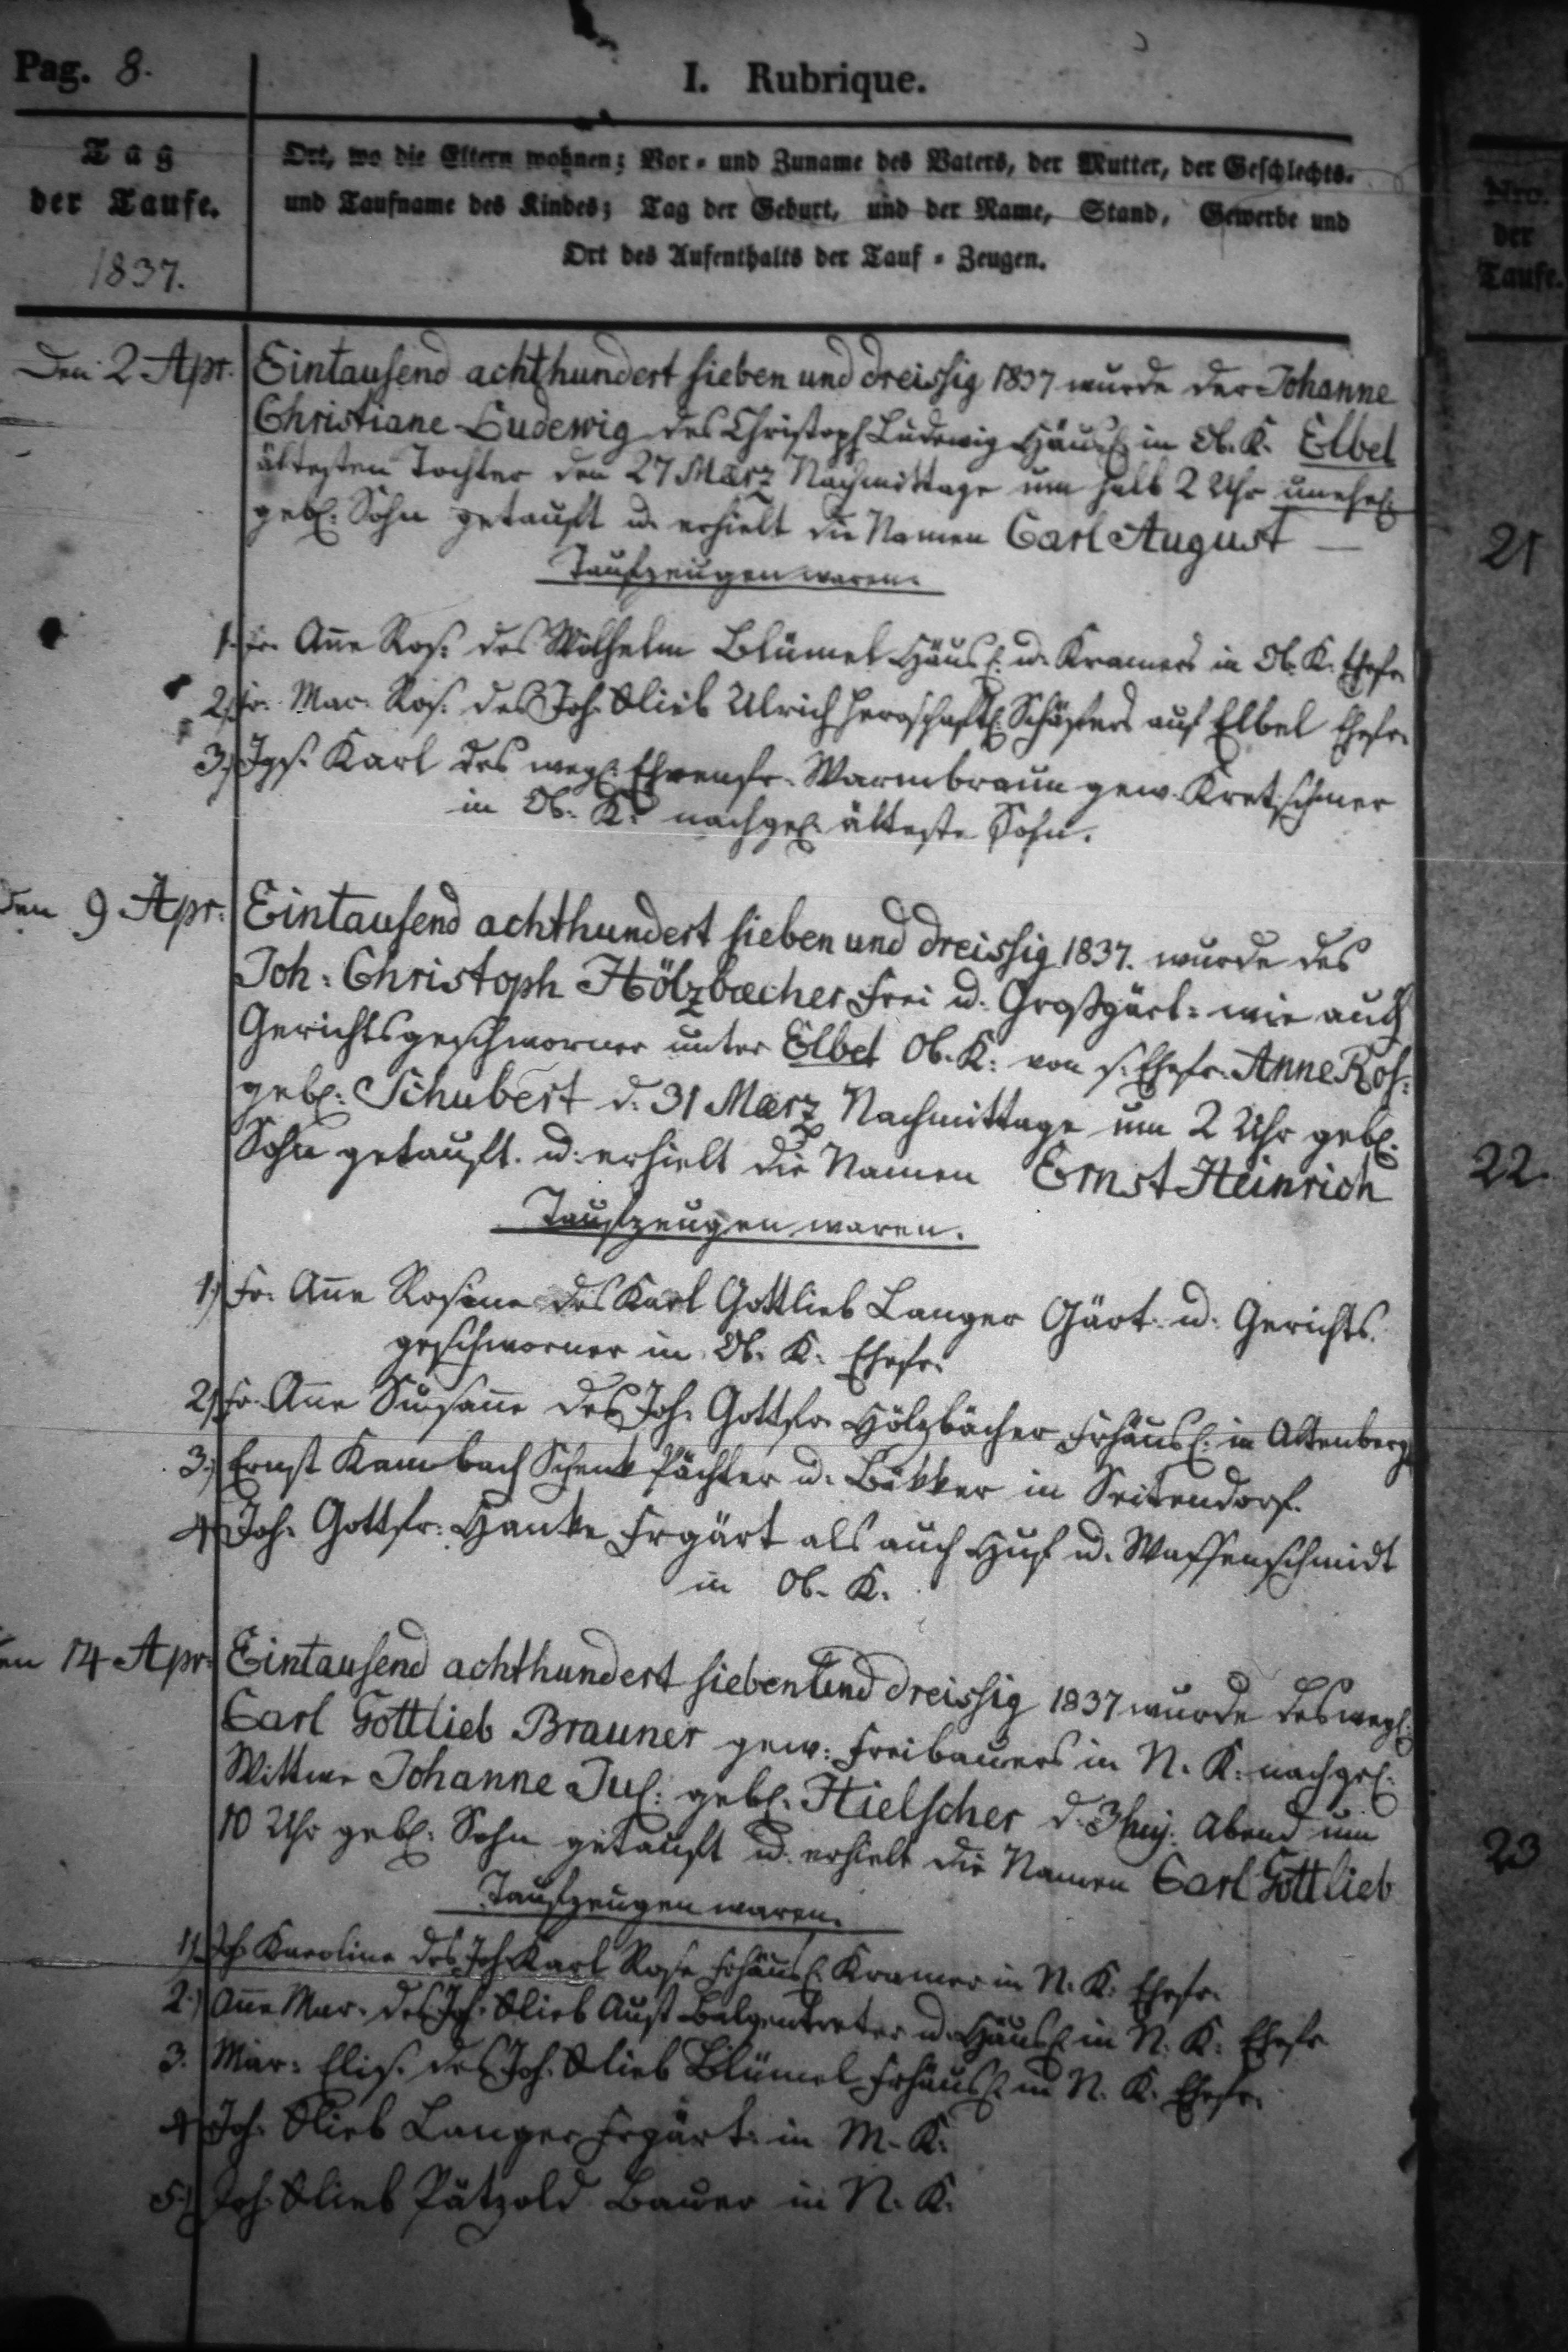 Pag. 8.
I. Rubrique.
Tag
der Taufe.
1837.
Ort, wo die Eltern wohnen; Vor- und Zuname des Vaters, der Mutter, der Geschlechts-
und Taufname des Kindes; Tag der Geburt, und der Name, Stand, Gewerbe und
Ort des Aufenthalts der Tauf-Zeugen.
Nro.
der
Taufe.
Den 2 Apr.
Eintausend achthundert sieben und dreissig 1837 wurde der Johanne
Christiane Ludewig des Christoph Ludewig Häusl: in Ob. K. Elbel
ältesten Tochter den 27 März Nachmittage um halb 2 Uhr unehel:
gebl: Sohn getauft u. erhielt die Namen Carl August —
21
Taufzeugen waren.
1. Fr. Ane Ros: des Wilhelm Blümel Häusl: u. Kramers in Ob. K. Ehefr.
2. Fr. Mar. Ros. des Joh. Glieb Ulrich herrschaftl: Schäfers auf Elbel Ehefr.
3.) Jgs. Karl des wegl: Ehrenfr. Warmbraun gew. Kretschmer
in Ob. K. nachgel: älteste Sohn.
den 9 Apr:
Eintausend achthundert sieben und dreissig 1837. wurde des
Joh: Christoph Hölzbæcher Frei u. Großgärt: wie auch
Gerichtsgeschworner unter Elbel Ob. K: von s. Ehefr. Anne Ros:
gebl: Schubert d. 31 Mærz Nachmittage um 2 Uhr gebl:
Sohn getauft. u. erhielt die Namen Ernst Heinrich
22
Taufzeugen waren.
1.) Fr. Ane Rosine des Karl Gottlieb Langer Gärt. u. Gerichts-
geschworner in Ob. K. Ehefr.
2) Fr. Ane Susane des Joh. Gottfr. Hölzbächer Frhäusl: in Altenberg
3.) Ernst Kambach Schenk Pächter u. Bäkker in Seitendorf.
4 Joh. Gottfr. Hanke Frgärt als auch Huf u. Waffenschmidt
in Ob. K.
14 Apr:
Eintausend achthundert sieben und dreissig 1837 wurde des wegl:
Carl Gottlieb Brauner gew: Freibauers in N. K: nachgel:
Wittwe Johanne Jul: gebl: Hielscher d. 3 huj: Abend um
10 Uhr gebl: Sohn getauft u. erhielt die Namen Carl Gottlieb
23
Taufzeugen waren.
1) Joh Karoline des Joh Karl Rose Frhäusl: Kramer in N. K. Ehefr.
2.) Ane Mar. des Joh. Glieb Aust Balgentreter u. Häusl: in N. K. Ehefr
3. Mar: Elis. des Joh. Glieb Blümel Frhäusl: in N. K. Ehefr.
4 Joh. Glieb Langer Frgärt. in M. K.
5.) Joh. Glieb Pätzold Bauer in N. K.